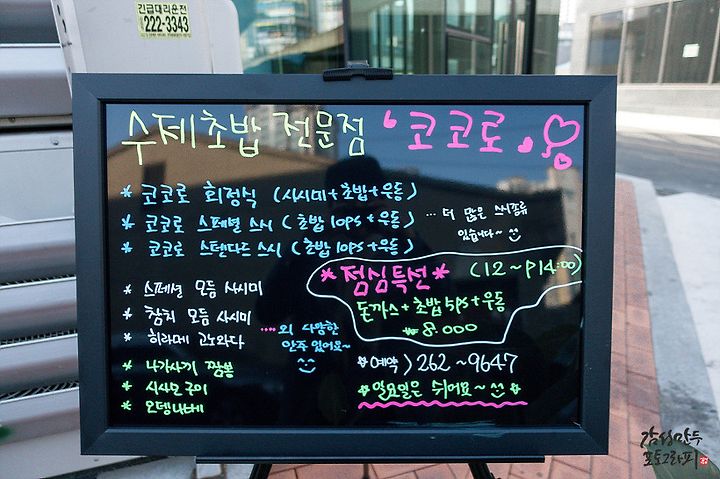 긴급대리운전
222-3343
수제초밥 전문점 '코코로'
* 코코로 회정식 (사시미+초밥+우동)
* 코코로 스페셜 스시 (초밥 10ps+우동)
* 코코로 스텐다드 스시 (초밥 10ps+우동)
... 더 많은 스시종류
있습니다~
*점심특선* (12~P14:00)
돈까스+초밥 5ps+우동
₩8.000
* 스페셜 모듬 사시미
* 참치 모듬 사시미
* 히라메 고노와다
.... 외 다양한
안주 있어요~
* 나가사끼 짬뽕
* 시사모 구이
* 오뎅나베
예약) 262~9647
일요일은 쉬어요~
감성만두
포토그라피